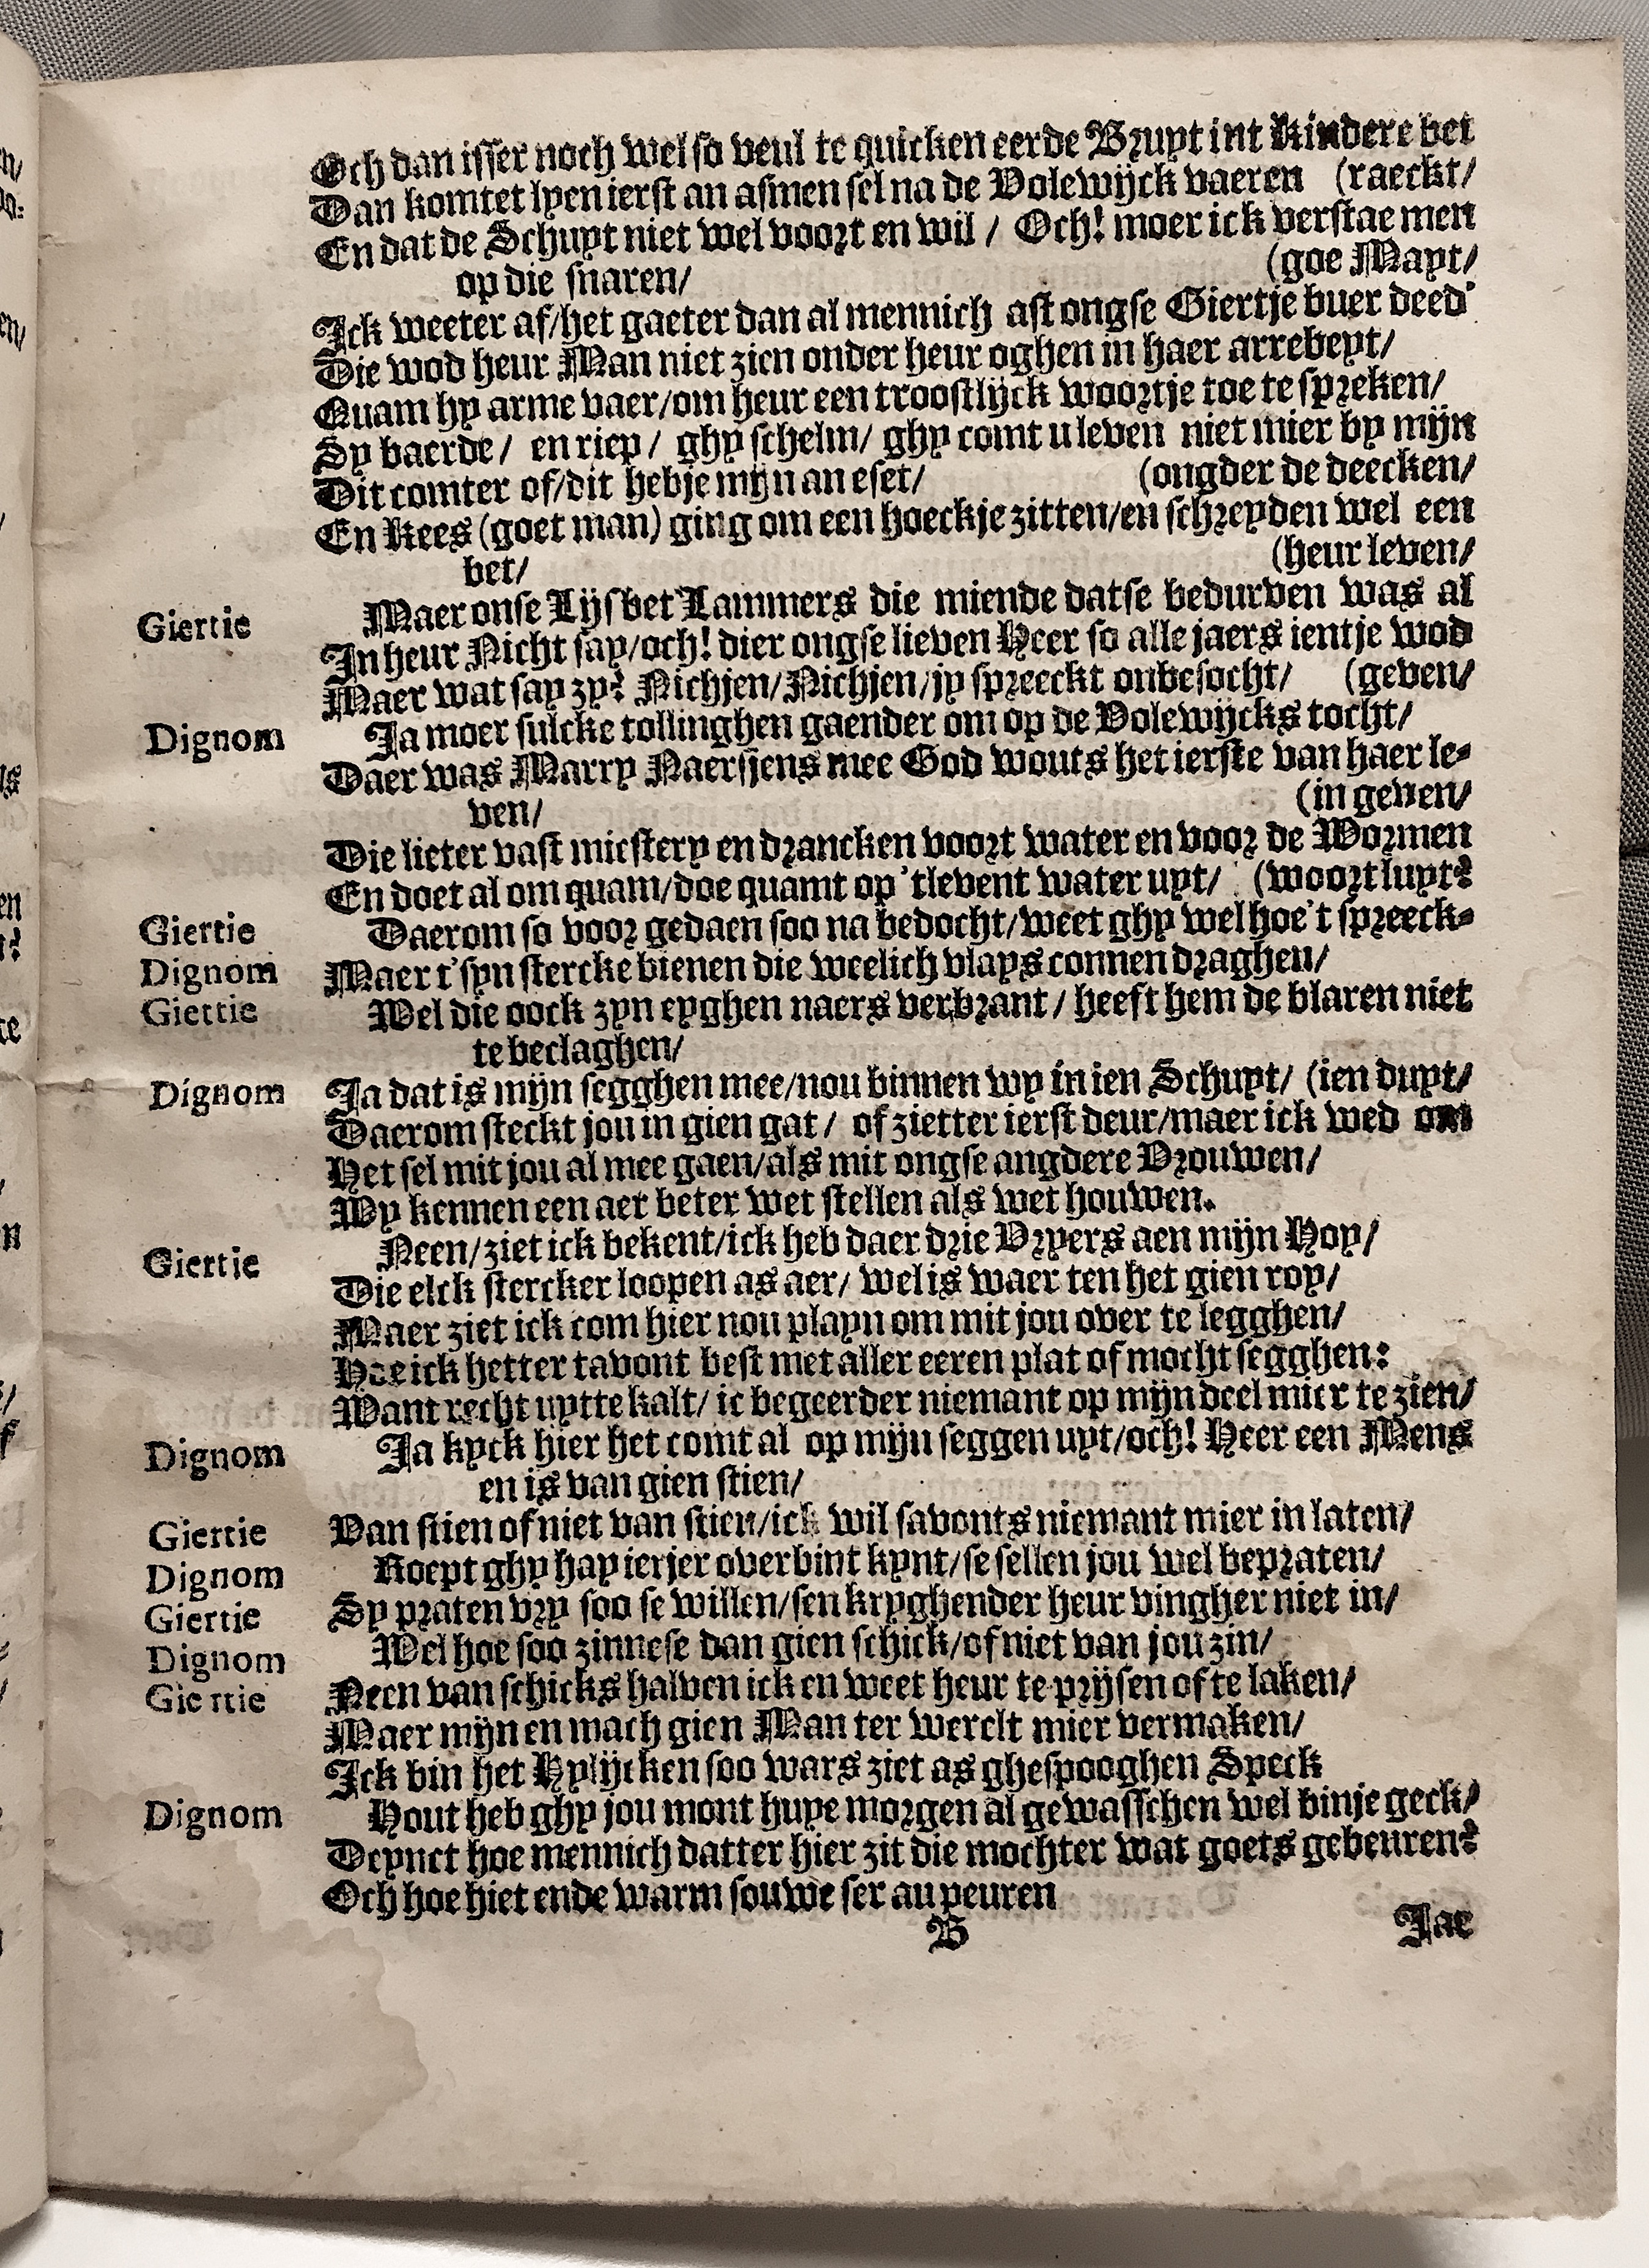 Och dan isser noch wel so veul te quicken eerde Bruyt int Kindere bet
Dan komtet lyen ierst an asmen sel na de Volewijck vaeren (raeckt/
En dat de Schuyt niet wel voort en wil / Och! moer ick verstae men
op die snaren/ (goe Mayt/
Ick weeter af/het gaeter dan al mennich ast ongse Giertje buer deed'
Die wod heur Man niet zien onder heur oghen in haer arrebeyt/
Quam hy arme vaer/om heur een troostlijck woortje toe te spreken/
Sy baerde/ en riep/ ghy schelm/ ghy comt u leven niet mier by mijn
Dit comter of/dit hebje mijn an eset/ (ongder de deecken/
En Kees (goet man) ging om een hoeckje zitten/en schreyden wel een
bet/ (heur leven/
Giertie Maer onse Lijsbet Lammers die miende datse bedurven was al
In heur Nicht say/och! dier ongse lieven Heer so alle jaers ientje wod
Maer wat say zy? Nichjen/Nichjen/jy spreeckt onbesocht/ (geven/
Dignom Ja moer sulcke tollinghen gaender om op de Volewijcks tocht/
Daer was Marry Naersjens mee God wouts het ierste van haer le-
ven/ (in geven/
Die lieter vast miestery en drancken voort water en voor de Wormen
En doet al om quam/doe quamt op 'tlevent water uyt/ (woort luyt?
Giertie Daerom so voor gedaen soo na bedocht/weet ghy wel hoe't spreeck-
Dignom Maer t'syn stercke bienen die weelich vlays connen draghen/
Giettie Wel die oock zyn eyghen naers verbrant/ heeft hem de blaren niet
te beclaghen/
Dignom Ja dat is mijn segghen mee/nou binnen wy in ien Schuyt/ (ien duyt/
Daerom steckt jou in gien gat/ of zietter ierst deur/maer ick wed om
Het sel mit jou al mee gaen/als mit ongse angdere Vrouwen/
Wy kennen een aer beter wet stellen als wet houwen.
Giertie Neen/ziet ick bekent/ick heb daer drie Vryers aen mijn Hoy/
Die elck stercker loopen as aer/ wel is waer ten het gien roy/
Maer ziet ick com hier nou playn om mit jou over te legghen/
Hoe ick hetter tavont best met aller eeren plat of mocht segghen:
Want recht uytte kalt/ ic begeerder niemant op mijn deel mier te zien/
Dignom Ja kyck hier het comt al op mijn seggen uyt/och! Heer een Mens
en is van gien stien/
Giertie Van stien of niet van stien/ick wil savonts niemant mier in laten/
Dignom Roept ghy hay ierjer overbint kynt/se sellen jou wel bepraten/
Giertie Sy praten vry soo se willen/sen kryghender heur vingher niet in/
Dignom Wel hoe soo zinnese van gien schick/of niet van jou zin/
Giertie Neen van schicks halven ick en weet heur te prijsen of te laken/
Maer mijn en mach gien Man ter werelt mier vermaken/
Ick bin het Hylijcken soo wars ziet as ghespooghen Speck
Dignom Hout heb ghy jou mont huye morgen al gewasschen wel binje geck/
Deynct hoe mennich datter hier zit die mochter wat goets gebeuren?
Och hoe hiet ende warm souwe ser au peuren
B Jae